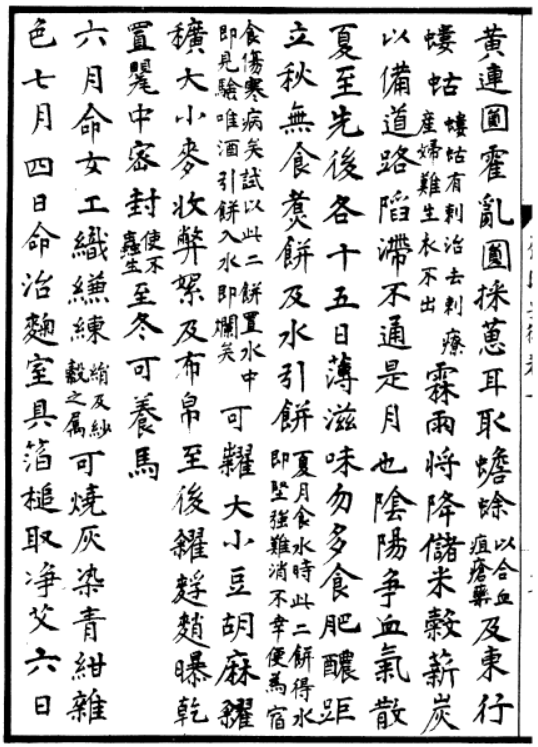 黃連圓霍亂圓採葱耳取蟾蜍以合血疽瘡藥及東行
螻蛄螻蛄有刺治去刺療產婦難生衣不出霖雨將降儲米穀薪炭
以備道路陷滯不通是月也陰陽爭血氣散
夏至先後各十五日薄滋味勿多食肥醲距
立秋無食煑餅及水引餅夏月食水時此二餅得水即堅強難消不幸便為宿
食傷寒病矣試以此二餅置水中即見驗唯酒引餅入水即爛矣可糶大小豆胡麻糴
穬大小麥收弊絮及布帛至後糴䴸䴬曝乾
置甖中密封使不蟲生至冬可養馬
六月命女工織縑練絹及紗縠之屬可燒灰染青紺雜
色七月四日命治麴室具箔槌取净艾六日